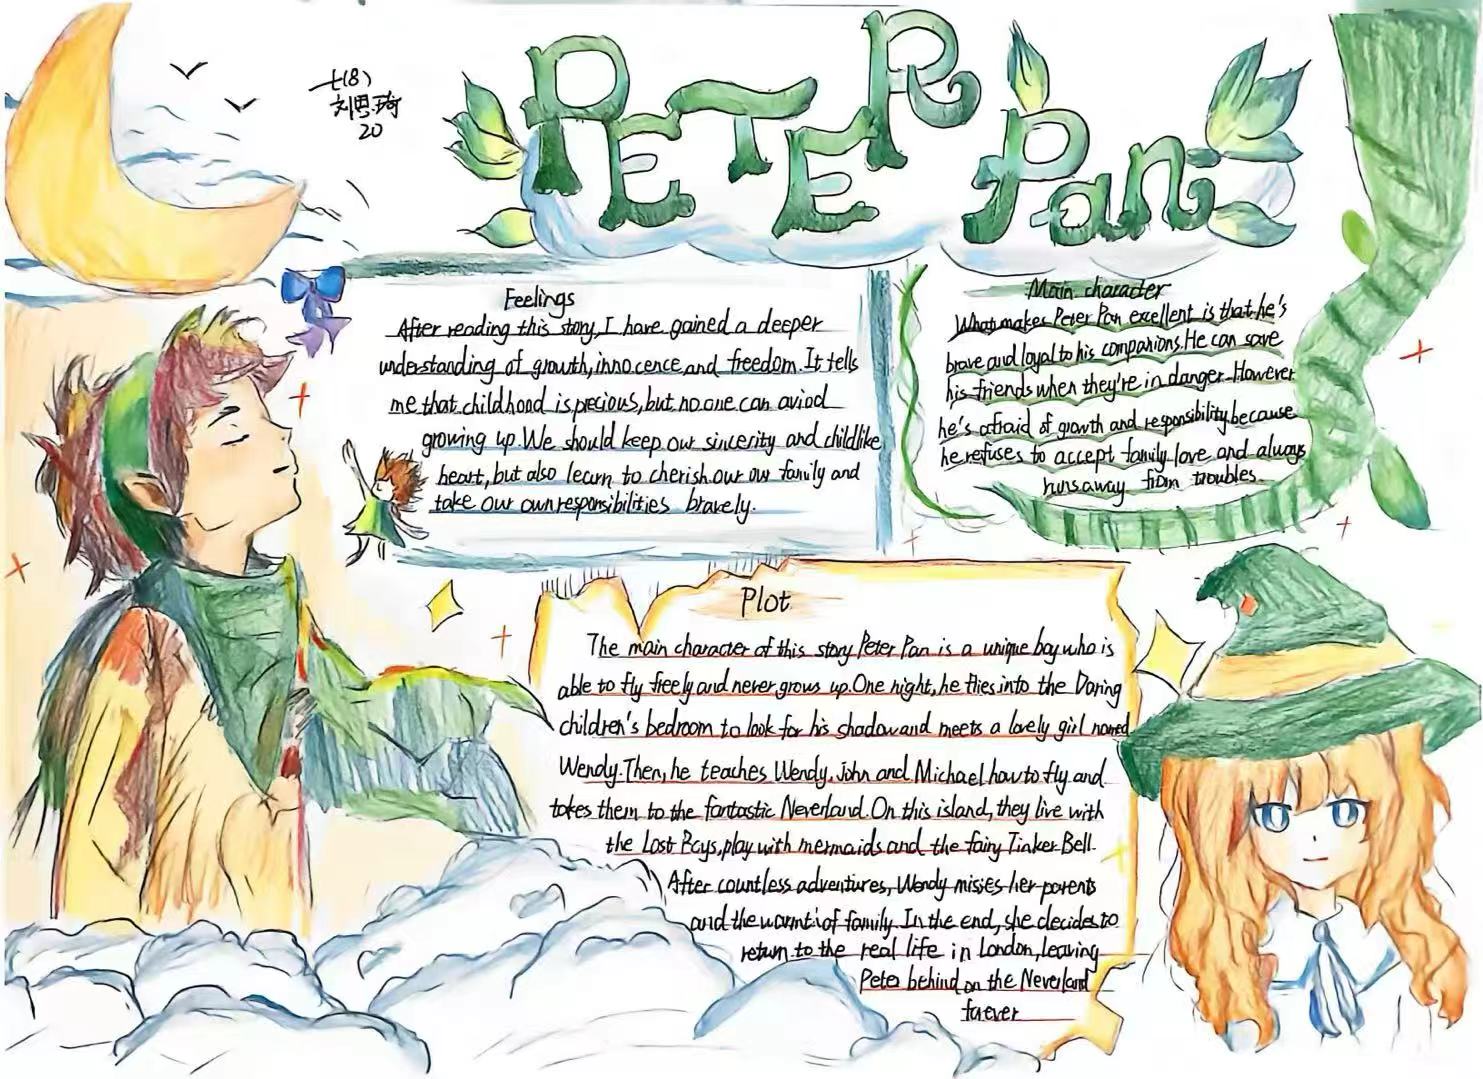 七(8)
刘思琦
20
PETER Pan
Feelings
After reading this story, I have gained a deeper
understanding of growth, innocence, and freedom. It tells
me that childhood is precious, but no one can aviod
growing up. We should keep our sincerity and childlike
heart, but also learn to cherish our ow family and
take our own responsibilities bravely.
Main character
What makes Peter Pan excellent is that he's
brave and loyal to his companions. He can save
his friends when they're in danger. However
he's afraid of growth and responsibility because
he refuses to accept family love and always
runs away from troubles.
Plot
The main character of this story Peter Pan is a unique boy who is
able to fly freely and never grows up. One night, he flies into the Daring
children's bedroom to look for his shadow and meets a lovely girl named
Wendy. Then, he teaches Wendy, John and Michael how to fly and
takes them to the fantastic Neverland. On this island, they live with
the Lost Boys, play with mermaids and the fairy Tinker Bell.
After countless adventures, Wendy misies her parents
and the of family. In the end, she decides to
return to the real life in London, leaving
Peter behind on the Neverland
forever